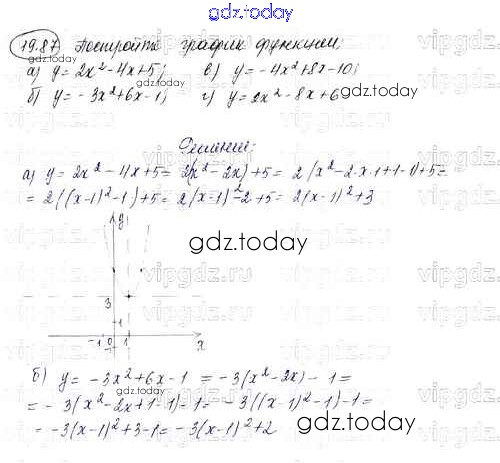 gdz.today
19.87 Постройте график функции
gdz.today
а) y = 2x² - 4x + 5; в) y = -4x² + 8x - 10;
б) y = -3x² + 6x - 1; г) y = 2x² - 8x + 6
gdz.today gdz.today
Решение:
а) y = 2x² - 4x + 5 = 2(x² - 2x) + 5 = 2(x² - 2·x·1 + 1 - 1) + 5 =
= 2((x-1)² - 1) + 5 = 2(x-1)² - 2 + 5 = 2(x-1)² + 3
gdz.today
y
gdz.today
vipgdz.ru
3
1
-1 0 1 x
б) y = -3x² + 6x - 1 = -3(x² - 2x) - 1 =
= -3(x² - 2x + 1 - 1) - 1 = -3((x-1)² - 1) - 1 =
gdz.today
= -3(x-1)² + 3 - 1 = -3(x-1)² + 2
gdz.today